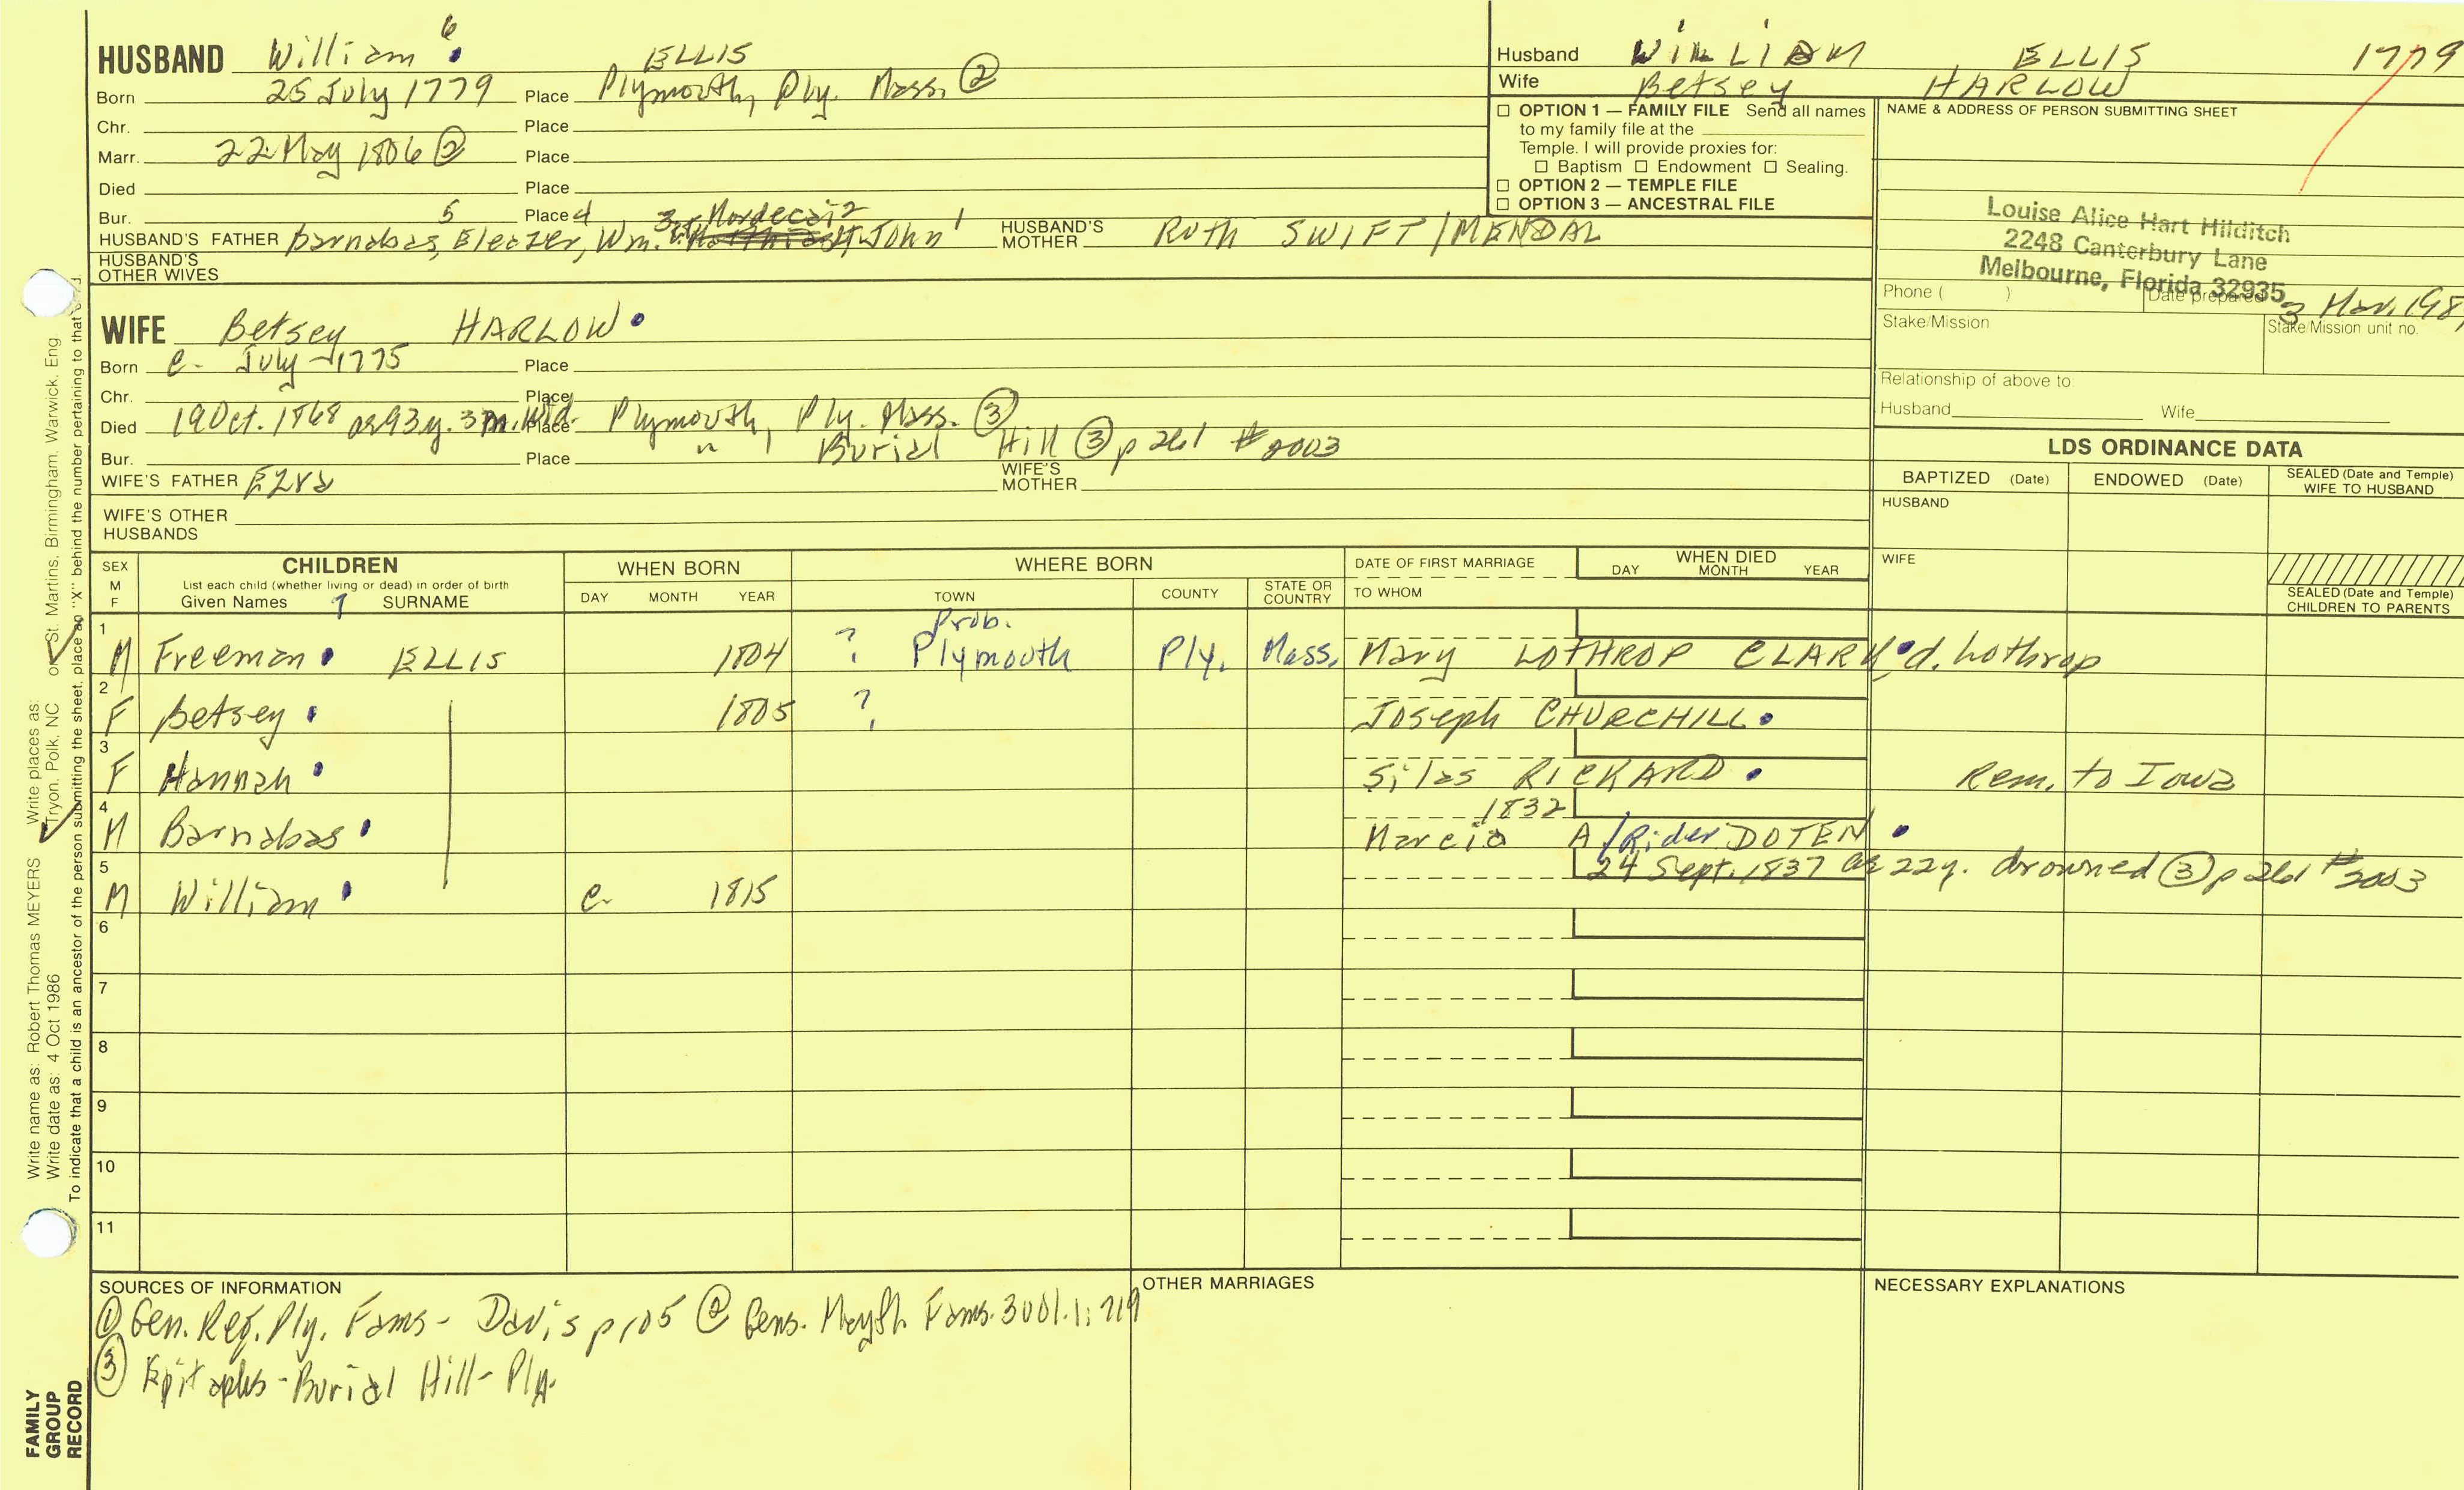 HUSBAND William 6 ELLIS
Born 25 July 1779 Place Plymouth, Ply. Mass. ②
Chr. Place
Marr. 22 May 1806 ② Place
Died Place
Bur. Place
HUSBAND'S FATHER Barnabas 5, Eleazer 4, Wm. 3, Mordecai 2, John 1 HUSBAND'S MOTHER RUTH SWIFT/MENDAL
HUSBAND'S OTHER WIVES
WIFE Betsey HARLOW
Born c. July 1775 Place
Chr. Place
Died 19 Oct. 1868 ae 93y. 3m. Wid. Place Plymouth, Ply. Mass. ③
Bur. Place " Burial Hill ③ p 261 # 2003
WIFE'S FATHER Ezra WIFE'S MOTHER
WIFE'S OTHER HUSBANDS
Husband WILLIAM ELLIS 1779
Wife Betsey HARLOW
OPTION 1 — FAMILY FILE Send all names
to my family file at the
Temple. I will provide proxies for:
Baptism Endowment Sealing.
OPTION 2 — TEMPLE FILE
OPTION 3 — ANCESTRAL FILE
NAME & ADDRESS OF PERSON SUBMITTING SHEET
Louise Alice Hart Hilditch
2248 Canterbury Lane
Melbourne, Florida 32935
Phone ( ) Date prepared 3 Mar. 198
Stake/Mission Stake/Mission unit no.
Relationship of above to:
Husband Wife
LDS ORDINANCE DATA
BAPTIZED (Date) ENDOWED (Date) SEALED (Date and Temple) WIFE TO HUSBAND
HUSBAND
WIFE
SEALED (Date and Temple) CHILDREN TO PARENTS
SEX M F CHILDREN
List each child (whether living or dead) in order of birth
Given Names 7 SURNAME
WHEN BORN DAY MONTH YEAR
WHERE BORN TOWN COUNTY STATE OR COUNTRY
DATE OF FIRST MARRIAGE TO WHOM
WHEN DIED DAY MONTH YEAR
1 M Freeman ELLIS 1804 ? Prob. Plymouth Ply. Mass. Mary LOTHROP CLARK d. Lothrop
2 F Betsey 1805 ? Joseph CHURCHILL
3 F Hannah Silas RICKARD Rem. to Iowa
4 M Barnabas 1832 Marcia A/Rider DOTEN
5 M William c. 1815 24 Sept. 1837 ae 22y. drowned ③ p 261 # 2003
6
7
8
9
10
11
SOURCES OF INFORMATION
① Gen. Reg. Ply. Fams - Davis p 105 ② Gens. Mayfl. Fams. 3001.1: 719
③ Epitaphs - Burial Hill - Ply.
OTHER MARRIAGES
NECESSARY EXPLANATIONS
Write name as: Robert Thomas MEYERS Write places as: Tryon, Polk, NC or St. Martins, Birmingham, Warwick, Eng.
Write date as: 4 Oct 1986
To indicate that a child is an ancestor of the person submitting the sheet, place an "X" behind the number pertaining to that
FAMILY
GROUP
RECORD